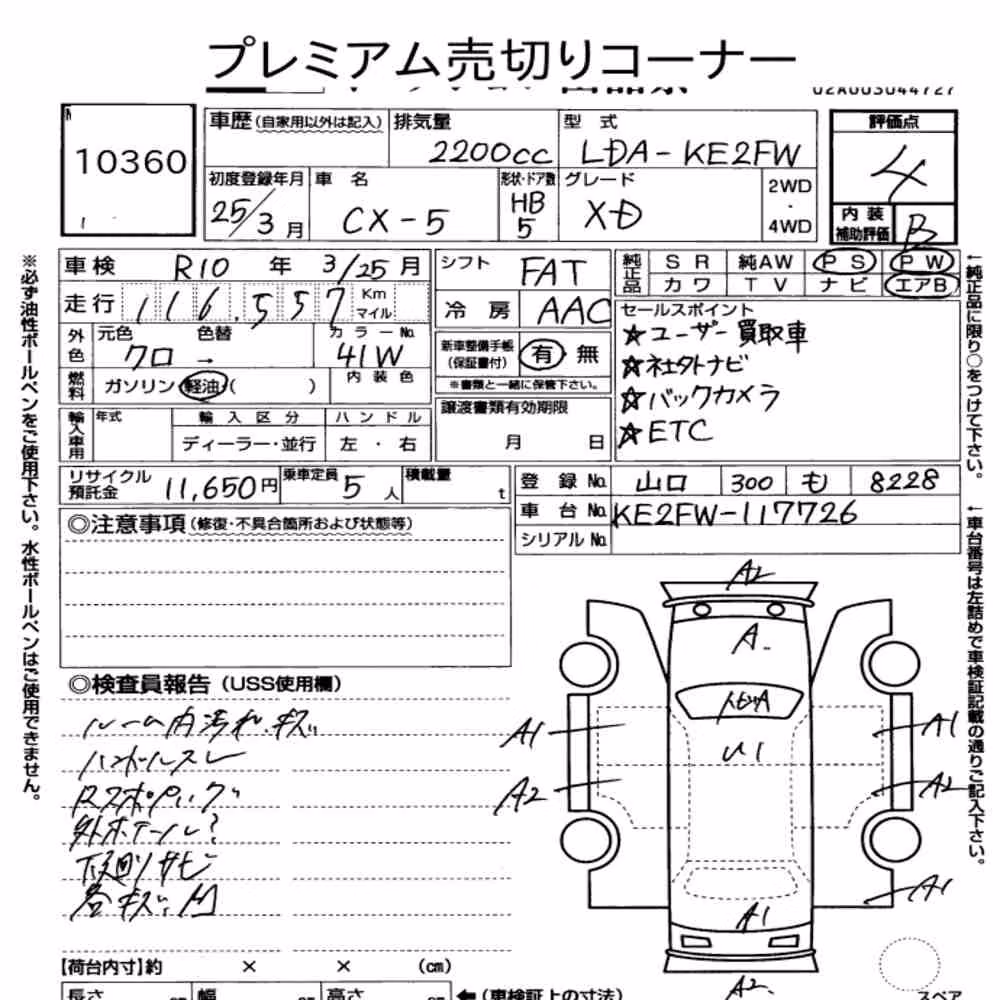 プレミアム売切りコーナー
10360
車歴(自家用以外は記入)
排気量
2200cc
型 式
LDA-KE2FW
評価点
4
内装
補助評価
B
初度登録年月
25/3月
車 名
CX-5
形状・ドア数
HB
5
グレード
XD
2WD
・
4WD
車検 R10 年 3/25月
走行 116,557 Km
マイル
シフト FAT
冷房 AAC
純正品
SR 純AW PS PW
カワ TV ナビ エアB
外色
元色 色替 カラーNo.
クロ → 41W
燃料
ガソリン・軽油( )
内装色
新車整備手帳
(保証書付)
有・無
※書類と一緒に保管下さい。
セールスポイント
☆ユーザー買取車
☆社外ナビ
☆バックカメラ
☆ETC
輸入車用
年式
輸入区分
ディーラー・並行
ハンドル
左・右
譲渡書類有効期限
月 日
リサイクル
預託金
11,650円
乗車定員
5人
積載量
t
登録No. 山口 300 も 8228
車台No. KE2FW-117726
シリアルNo.
◎注意事項(修復・不具合箇所および状態等)
◎検査員報告(USS使用欄)
ルーム内汚れ.キズ
ハンドルスレ
外ホイール
下廻りサビ
各キズ.凹
【荷台内寸】約 × × (cm)
長さ cm 幅 cm 高さ cm
←(車検証上の寸法)
※必ず油性ボールペンをご使用下さい。水性ボールペンはご使用できません。
←純正品に限り○をつけて下さい。
←車台番号は左詰めで車検証記載の通りご記入下さい。
A2
A
U1
A1
A2
A1
A2
A1
A1
A2
スペア